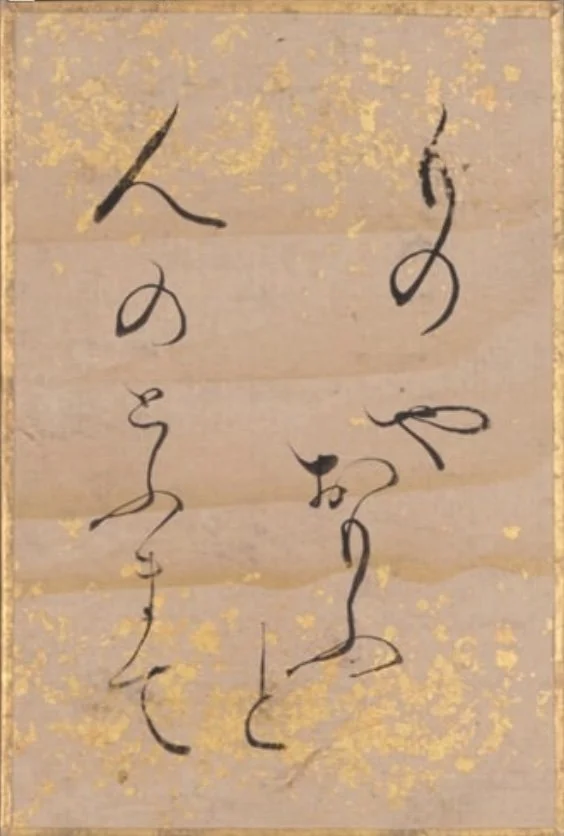 ものや
おもふ
と
人のとふまて